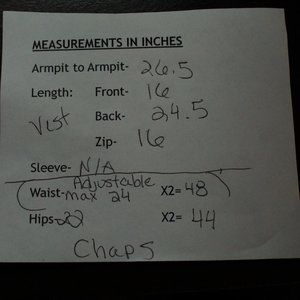 MEASUREMENTS IN INCHES
Armpit to Armpit- 26.5
Length: Front- 16
Vest Back- 24.5
Zip- 16
Sleeve- N/A
Adjustable
Waist- max 24 X2= 48
Hips- 22 X2= 44
Chaps